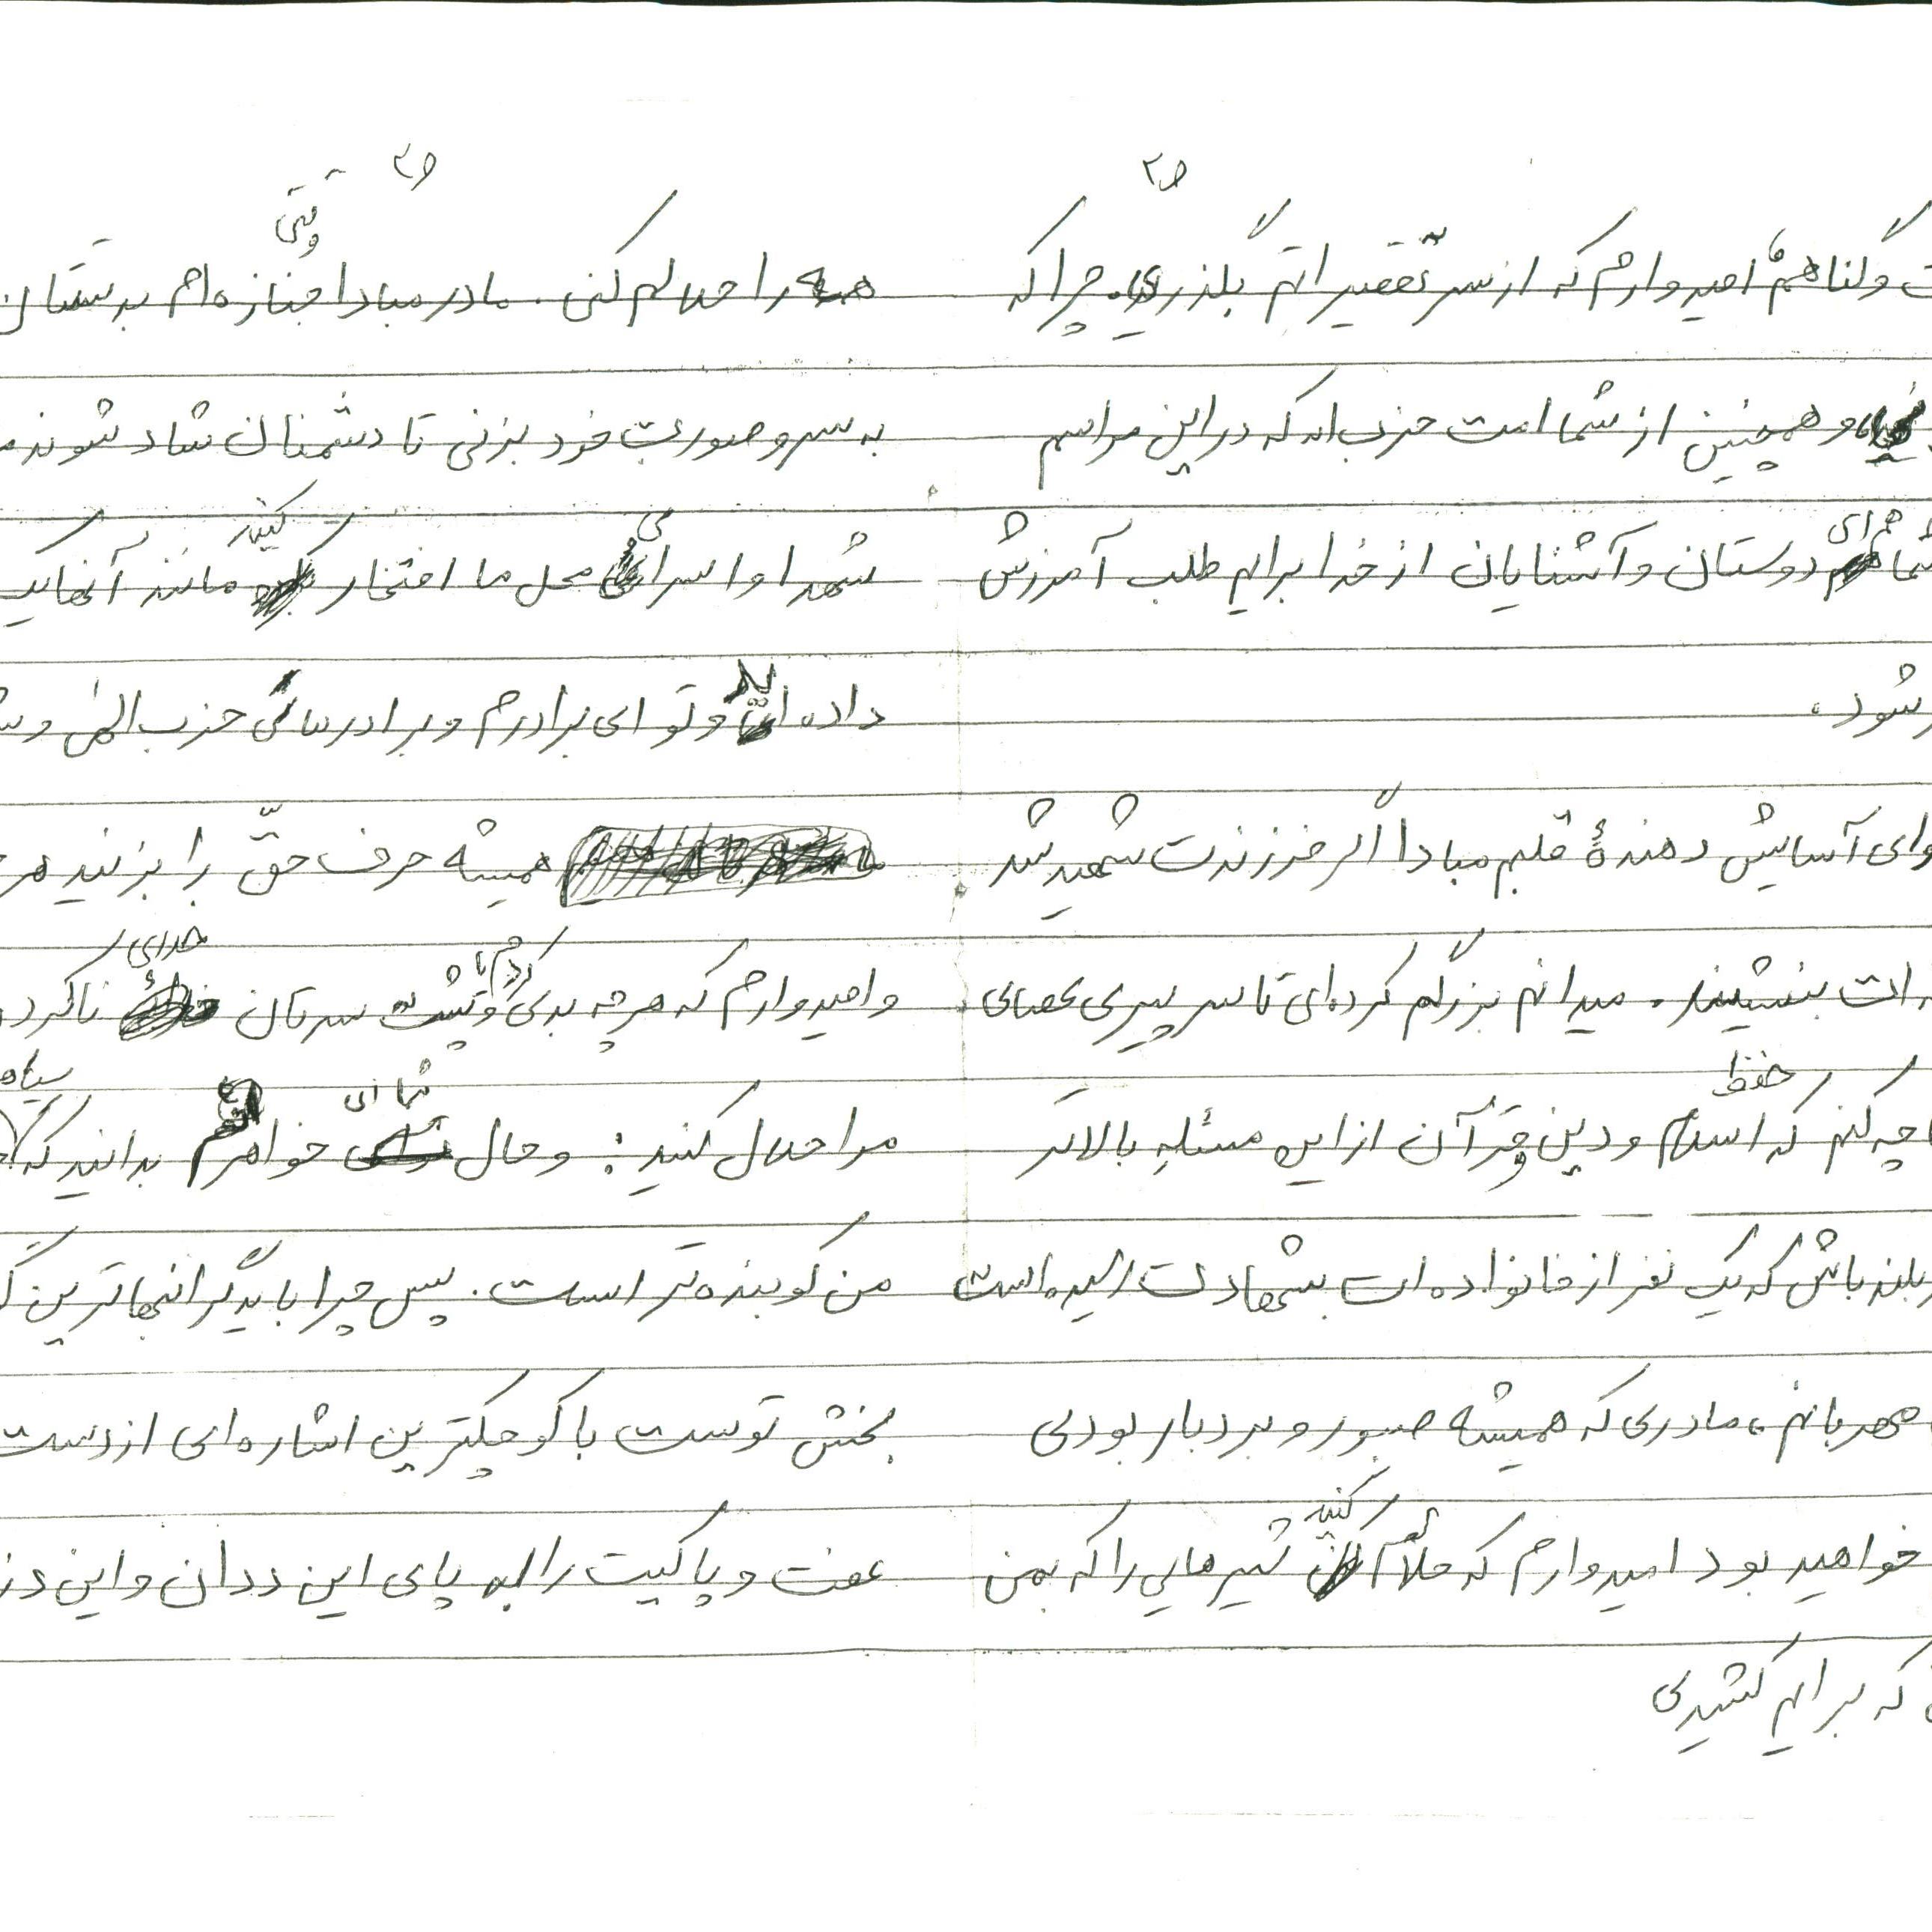 ص۲
و گناهم امیدوارم که از سر تقصیراتم بگذرید. چرا که
و همچنین از شما امت حزب اله که در این مراسم
شما ای دوستان و آشنایان از خدا برایم طلب آمرزش
شود.
وای آسایش دهندهٔ قلبم مبادا اگر فرزندت شهید شد
ات بنشیند. میدانم بزرگم کرده‌ای تا سر پیری عصای
چه کنم که حفظ اسلام و دین و قرآن از این مسئله بالاتر
بلند باش که یک نفر از خانواده ات بشهادت رسیده است
مهربانم، مادری که همیشه صبور و بردبار بودی
خواهید بود امیدوارم که حلالم کنید شیرهایی را که بمن
که برایم کشیدی
ص۳
همه را حلالم کنی. مادر مبادا وقتی جنازه‌ام بدستتان
به سر و صورت خود بزنی تا دشمنان شاد شوند
شهدا و اسرای محل ما افتخار کنید مانند آنها که
داده اند و تو ای برادرم و برادرهای حزب الهی و
همیشه حرف حقّ را بزنید
و امیدوارم که هر چه بدی کردم یا پشت سرتان خدای ناکرده
مرا حلال کنید: و حال شما ای خواهرم بدانید که سیاه
من کوبنده تر است. پس چرا باید گرانبهاترین
بخش توست با کوچکترین اشاره‌ای از دست
عفت و پاکیت را به پای این ددان و این